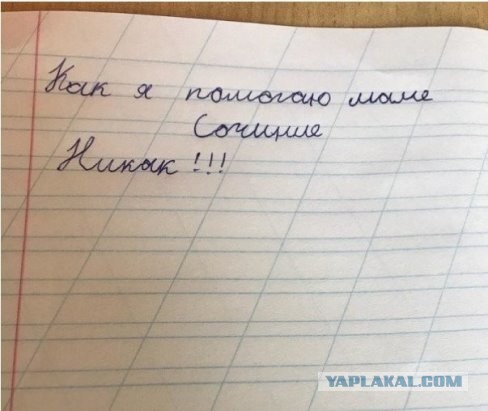 Как я помогаю маме
Сочиние
Никак!!!
YAPLAKAL.COM